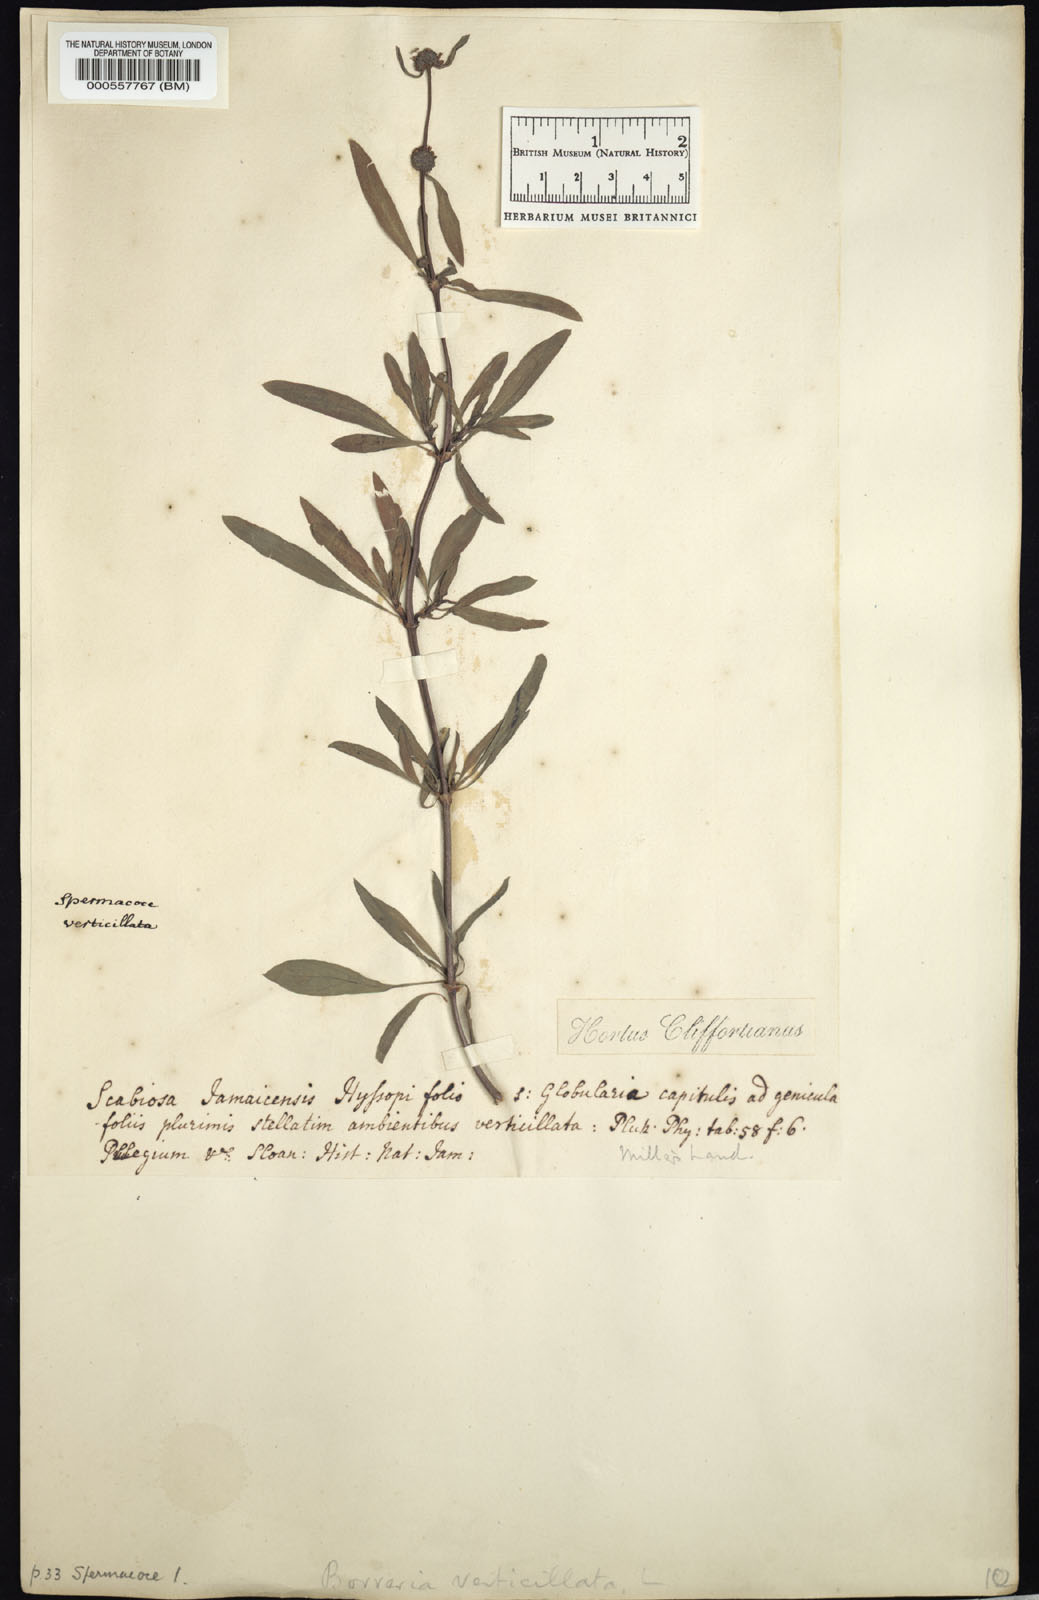 THE NATURAL HISTORY MUSEUM, LONDON
DEPARTMENT OF BOTANY
000557767 (BM)
1 2
BRITISH MUSEUM (NATURAL HISTORY)
1 2 3 4 5
HERBARIUM MUSEI BRITANNICI
Spermacoce
verticillata
Hortus Cliffortianus
Scabiosa Jamaicensis Hyssopi folio s: Globularia capitulis ad genicula
foliis plurimis stellatim ambientibus verticillata: Pluk. Phy: tab: 58 f: 6.
Sloan: Hist: Nat: Jam:
Miller's hand.
p 33 Spermacoce 1.
Borreria verticillata, L